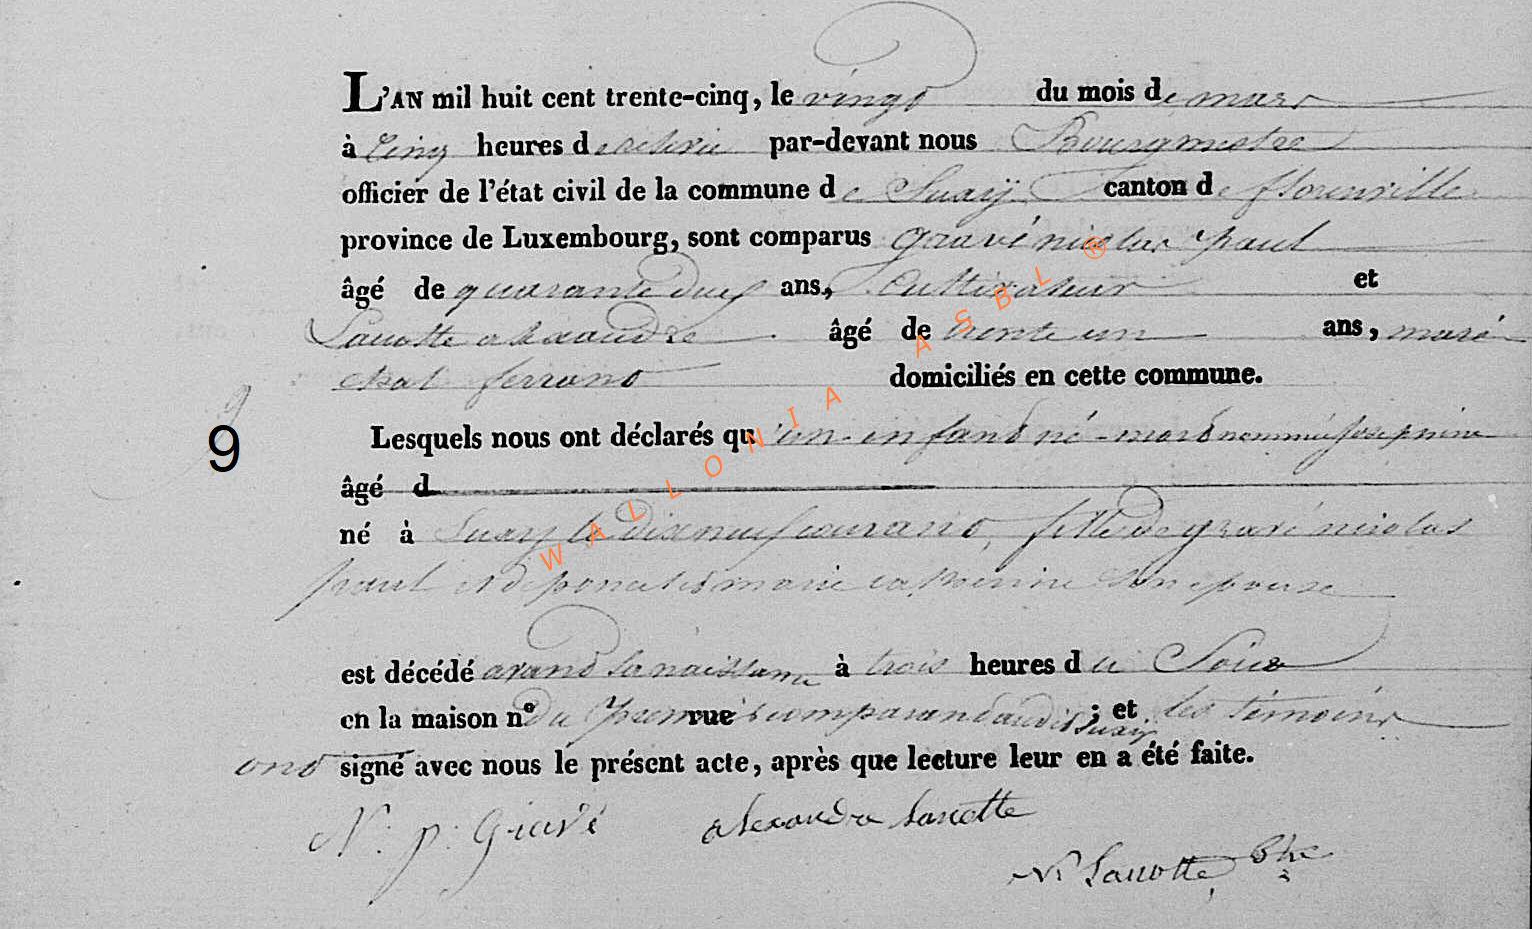 L'AN mil huit cent trente-cinq, le vingt du mois de mars
à cinq heures de relevée par-devant nous Bourgmestre
officier de l'état civil de la commune de Suxÿ canton de florenville
province de Luxembourg, sont comparus gravé nicolas paul
âgé de quarante deux ans, Cultivateur et
Lanotte alexandre âgé de trente un ans, maré
chal ferrand domiciliés en cette commune.
9
Lesquels nous ont déclarés qu'un enfant né-mort nommée josephine
âgé d
né à Suxy le dixneuf courant, fille de gravé nicolas
paul et de poncelet marie catherine son epouse
est décédé avant sa naissance à trois heures du Soir
en la maison n° du premier rue comparant audit Suxy ; et les témoins
ont signé avec nous le présent acte, après que lecture leur en a été faite.
N: p: Gravé alexandre Lanotte
N. Lanotte, Btre
WALLONIA ASBL ®